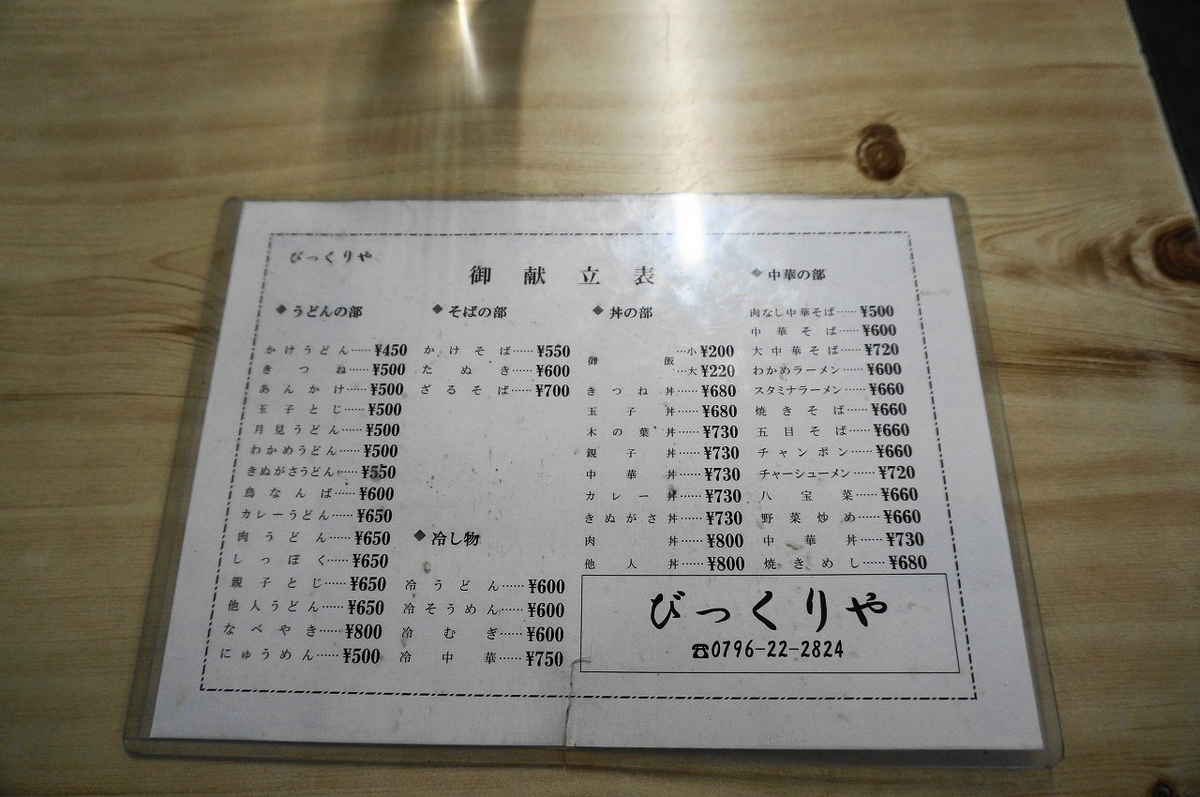 びっくりや
御献立表
◆うどんの部
かけうどん……¥450
きつね……¥500
あんかけ……¥500
玉子とじ……¥500
月見うどん……¥500
わかめうどん……¥500
きぬがさうどん……¥550
鳥なんば……¥600
カレーうどん……¥650
肉うどん……¥650
しっぽく……¥650
親子とじ……¥650
他人うどん……¥650
なべやき……¥800
にゅうめん……¥500
◆そばの部
かけそば……¥550
たぬき……¥600
ざるそば……¥700
◆冷し物
冷うどん……¥600
冷そうめん……¥600
冷むぎ……¥600
冷中華……¥750
◆丼の部
御飯…小¥200
…大¥220
きつね丼……¥680
玉子丼……¥680
木の葉丼……¥730
親子丼……¥730
中華丼……¥730
カレー丼……¥730
きぬがさ丼……¥730
肉丼……¥800
他人丼……¥800
◆中華の部
肉なし中華そば……¥500
中華そば……¥600
大中華そば……¥720
わかめラーメン……¥600
スタミナラーメン……¥660
焼きそば……¥660
五目そば……¥660
チャンポン……¥660
チャーシューメン……¥720
八宝菜……¥660
野菜炒め……¥660
中華丼……¥730
焼きめし……¥680
びっくりや
☎0796-22-2824